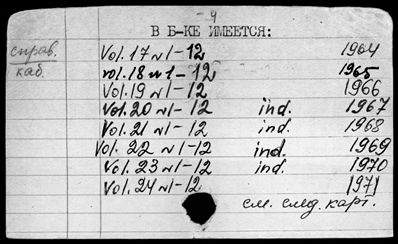 - 4
В Б-КЕ ИМЕЕТСЯ:
справ. каб.
Vol. 17 N 1-12 1964
vol. 18 N 1-12 1965
Vol. 19 N 1-12 1966
Vol. 20 N 1-12 ind. 1967
Vol. 21 N 1-12 ind. 1968
Vol. 22 N 1-12 ind. 1969
Vol. 23 N 1-12 ind. 1970
Vol. 24 N 1-12 1971
см. след. карт.